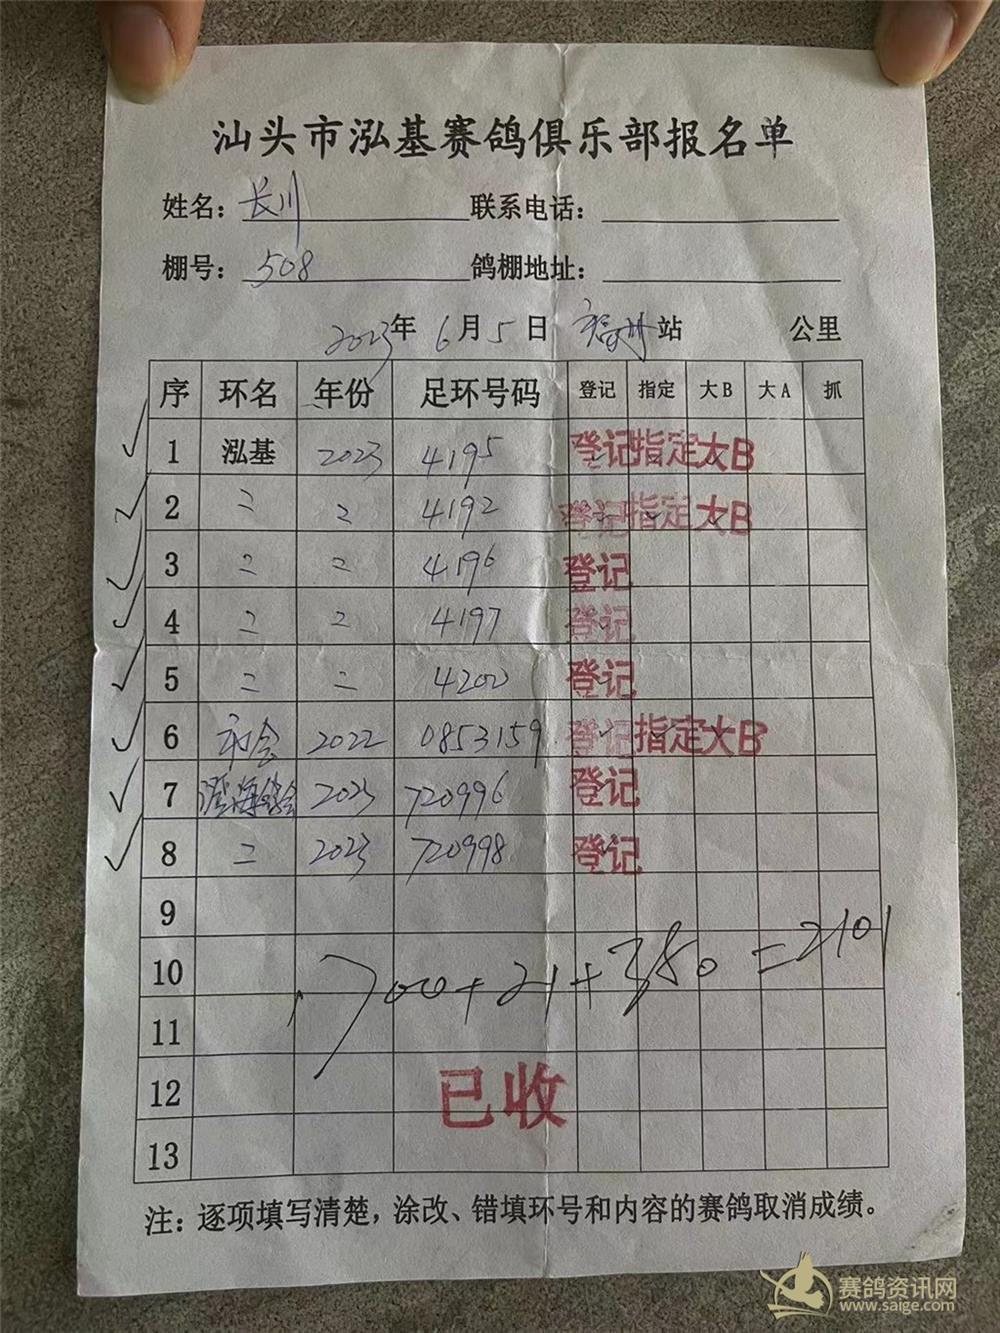 汕头市泓基赛鸽俱乐部报名单
姓名：长川 联系电话：
棚号：508 鸽棚地址：
2023年6月5日 福州站 公里
序 环名 年份 足环号码 登记 指定 大B 大A 抓
1 泓基 2023 4195 登记 指定 大B
2 〃 〃 4192 登记 指定 大B
3 〃 〃 4196 登记
4 〃 〃 4197 登记
5 〃 〃 4200 登记
6 市会 2022 0853159 登记 指定 大B
7 澄海鸽会 2023 720996 登记
8 〃 2023 720998 登记
9
10
1700+21+380=2101
11
12
已收
13
注：逐项填写清楚，涂改、错填环号和内容的赛鸽取消成绩。
赛鸽资讯网
www.saige.com